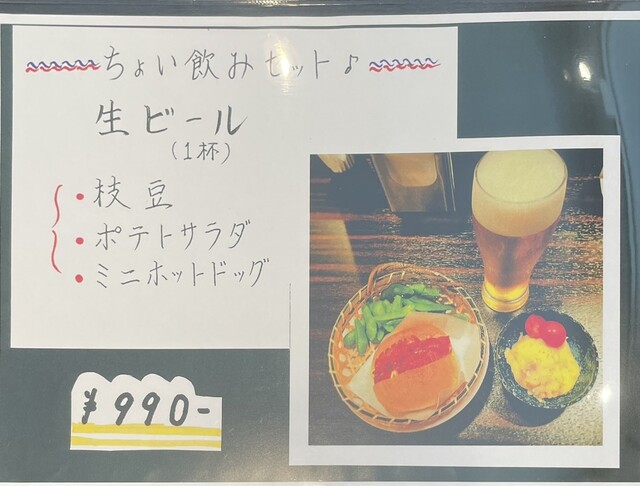 ちょい飲みセット♪
生ビール
(1杯)
・枝豆
・ポテトサラダ
・ミニホットドッグ
¥990-